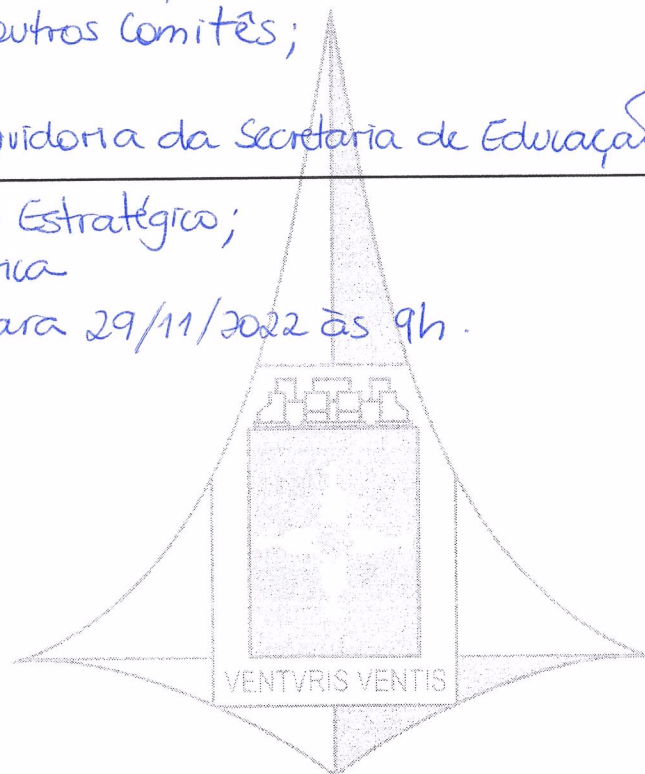 outros Comitês;
vidoria da Secretaria de Educação
Estratégico;
ica
ara 29/11/2022 às 9h.
VENTVRIS VENTIS